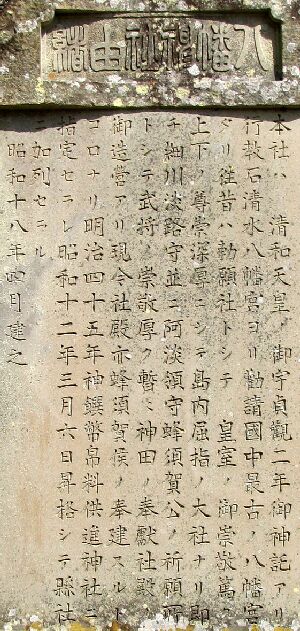 八幡神社由緒
本社ハ 清和天皇ノ御宇貞觀二年御神託アリ
行教石清水八幡宮ヨリ勸請國中最古ノ八幡宮
ダリ往昔ハ勅願社トシテ 皇室ノ御崇敬萬ク
上下ノ尊崇深厚ニシテ島内屈指ノ大社ナリ即
チ細川淡路守並ニ阿淡領守蜂須賀公ノ祈願所
トシテ武將ノ崇敬厚ク暫々神田ノ奉獻社殿ノ
御造營アリ現今社殿亦蜂須賀侯ノ奉建スルト
コロナリ明治四十五年神饌幣帛料供進神社ニ
指定セラレ昭和十二年三月六日昇格シテ縣社
ニ加列セラル
昭和十八年四月建之